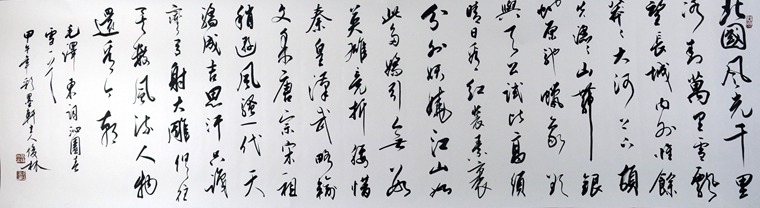 北國風光千里
冰封萬里雪飄
望長城內外惟餘
莽莽大河上下頓
失滔滔山舞銀
蛇原馳蠟象欲
與天公試比高須
晴日看紅裝素裹
分外妖嬈江山如
此多嬌引無數
英雄競折腰惜
秦皇漢武略輸
文采唐宗宋祖
稍遜風騷一代天
驕成吉思汗只識
彎弓射大雕俱往
矣數風流人物
還看今朝
毛澤東詞沁園春
雪
甲午年 軒主俊林